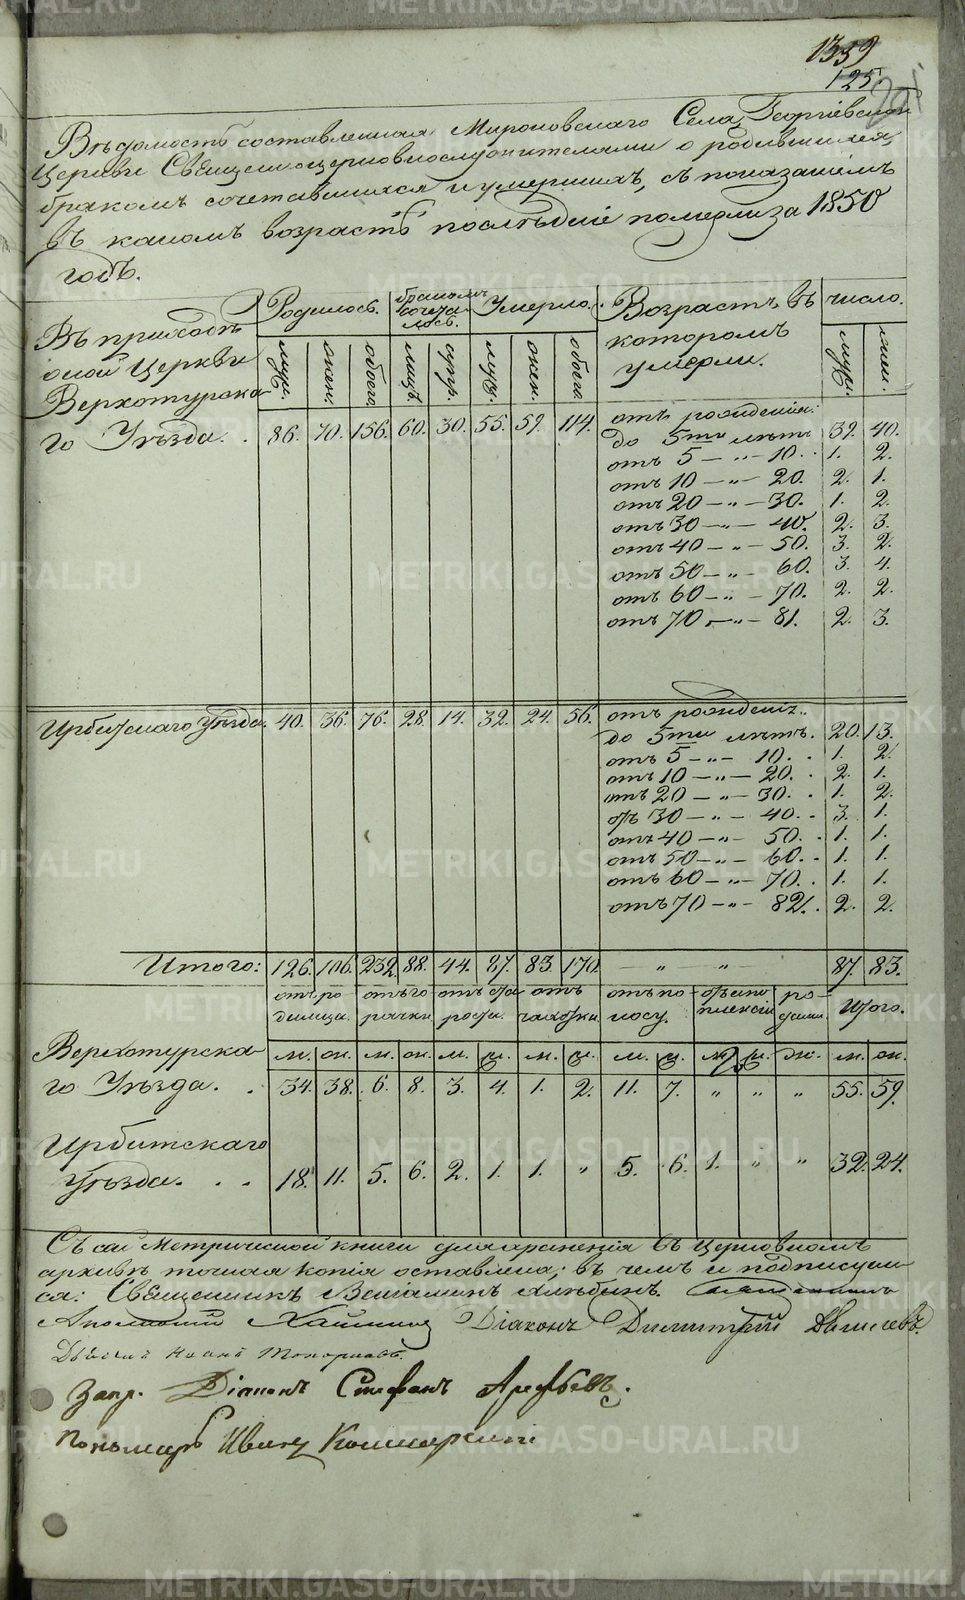 1359
125
Вѣдомость составленная Мироновскаго Села, Георгіевской
Церкви Священноцерковнослужителями о родившихся,
бракомъ сочетавшихся и умершихъ, съ показаніемъ
въ какомъ возрастѣ послѣдніе померли за 1850
годъ.
Въ приходѣ оной Церкви Верхотурскаго Уѣзда.
Родилось. бракомъ сочеталось. Умерло. Возрастъ, въ которомъ умерли. число.
муж. жен. обоего лицъ супр. муж. жен. обоего муж. жен.
86. 70. 156. 60. 30. 55. 59. 114.
отъ рожденія.
до 5ти лѣтъ 39. 40.
отъ 5 — „ — 10. 1. 2.
отъ 10 — „ — 20. 2. 1.
отъ 20 — „ — 30. 1. 2.
отъ 30 — „ — 40. 2. 3.
отъ 40 — „ — 50. 3. 2.
отъ 50 — „ — 60. 3. 4.
отъ 60 — „ — 70. 2. 2.
отъ 70 — „ — 81. 2. 3.
Ирбитскаго Уѣзда. 40. 36. 76. 28. 14. 32. 24. 56. отъ рожденія.
до 5ти лѣтъ. 20. 13.
отъ 5 — „ — 10. 1. 2.
отъ 10 — „ — 20. 2. 1.
отъ 20 — „ — 30. 1. 2.
отъ 30 — „ — 40. 3. 1.
отъ 40 — „ — 50. 1. 1.
отъ 50 — „ — 60. 1. 1.
отъ 60 — „ — 70. 1. 1.
отъ 70 — „ — 82. 2. 2.
Итого: 126. 106. 232. 88. 44. 87. 83. 170. — „ — „ — 87. 83.
отъ родимца. отъ горячки отъ отъ чахотки отъ поносу. Итого.
м. ж. м. ж. м. ж. м. ж. м. ж. м. ж. ж. м. ж.
Верхотурскаго Уѣзда. 34. 38. 6. 8. 3. 4. 1. 2. 11. 7. „ „ „ 55. 59.
Ирбитскаго
Уѣзда. 18. 11. 5. 6. 2. 1. 1. „ 5. 6. 1. „ „ 32. 24.
Съ сей Метрической книги для храненія въ Церковномъ
архивѣ точная копія оставлена; въ чемъ и подписуем-
ся: Священникъ Веніаминъ
Діаконъ Димитрій
Іоаннъ Топорковъ.
Діаконъ Стефанъ Арефьевъ.
Пономарь Иванъ
METRIKI.GASO-URAL.RU